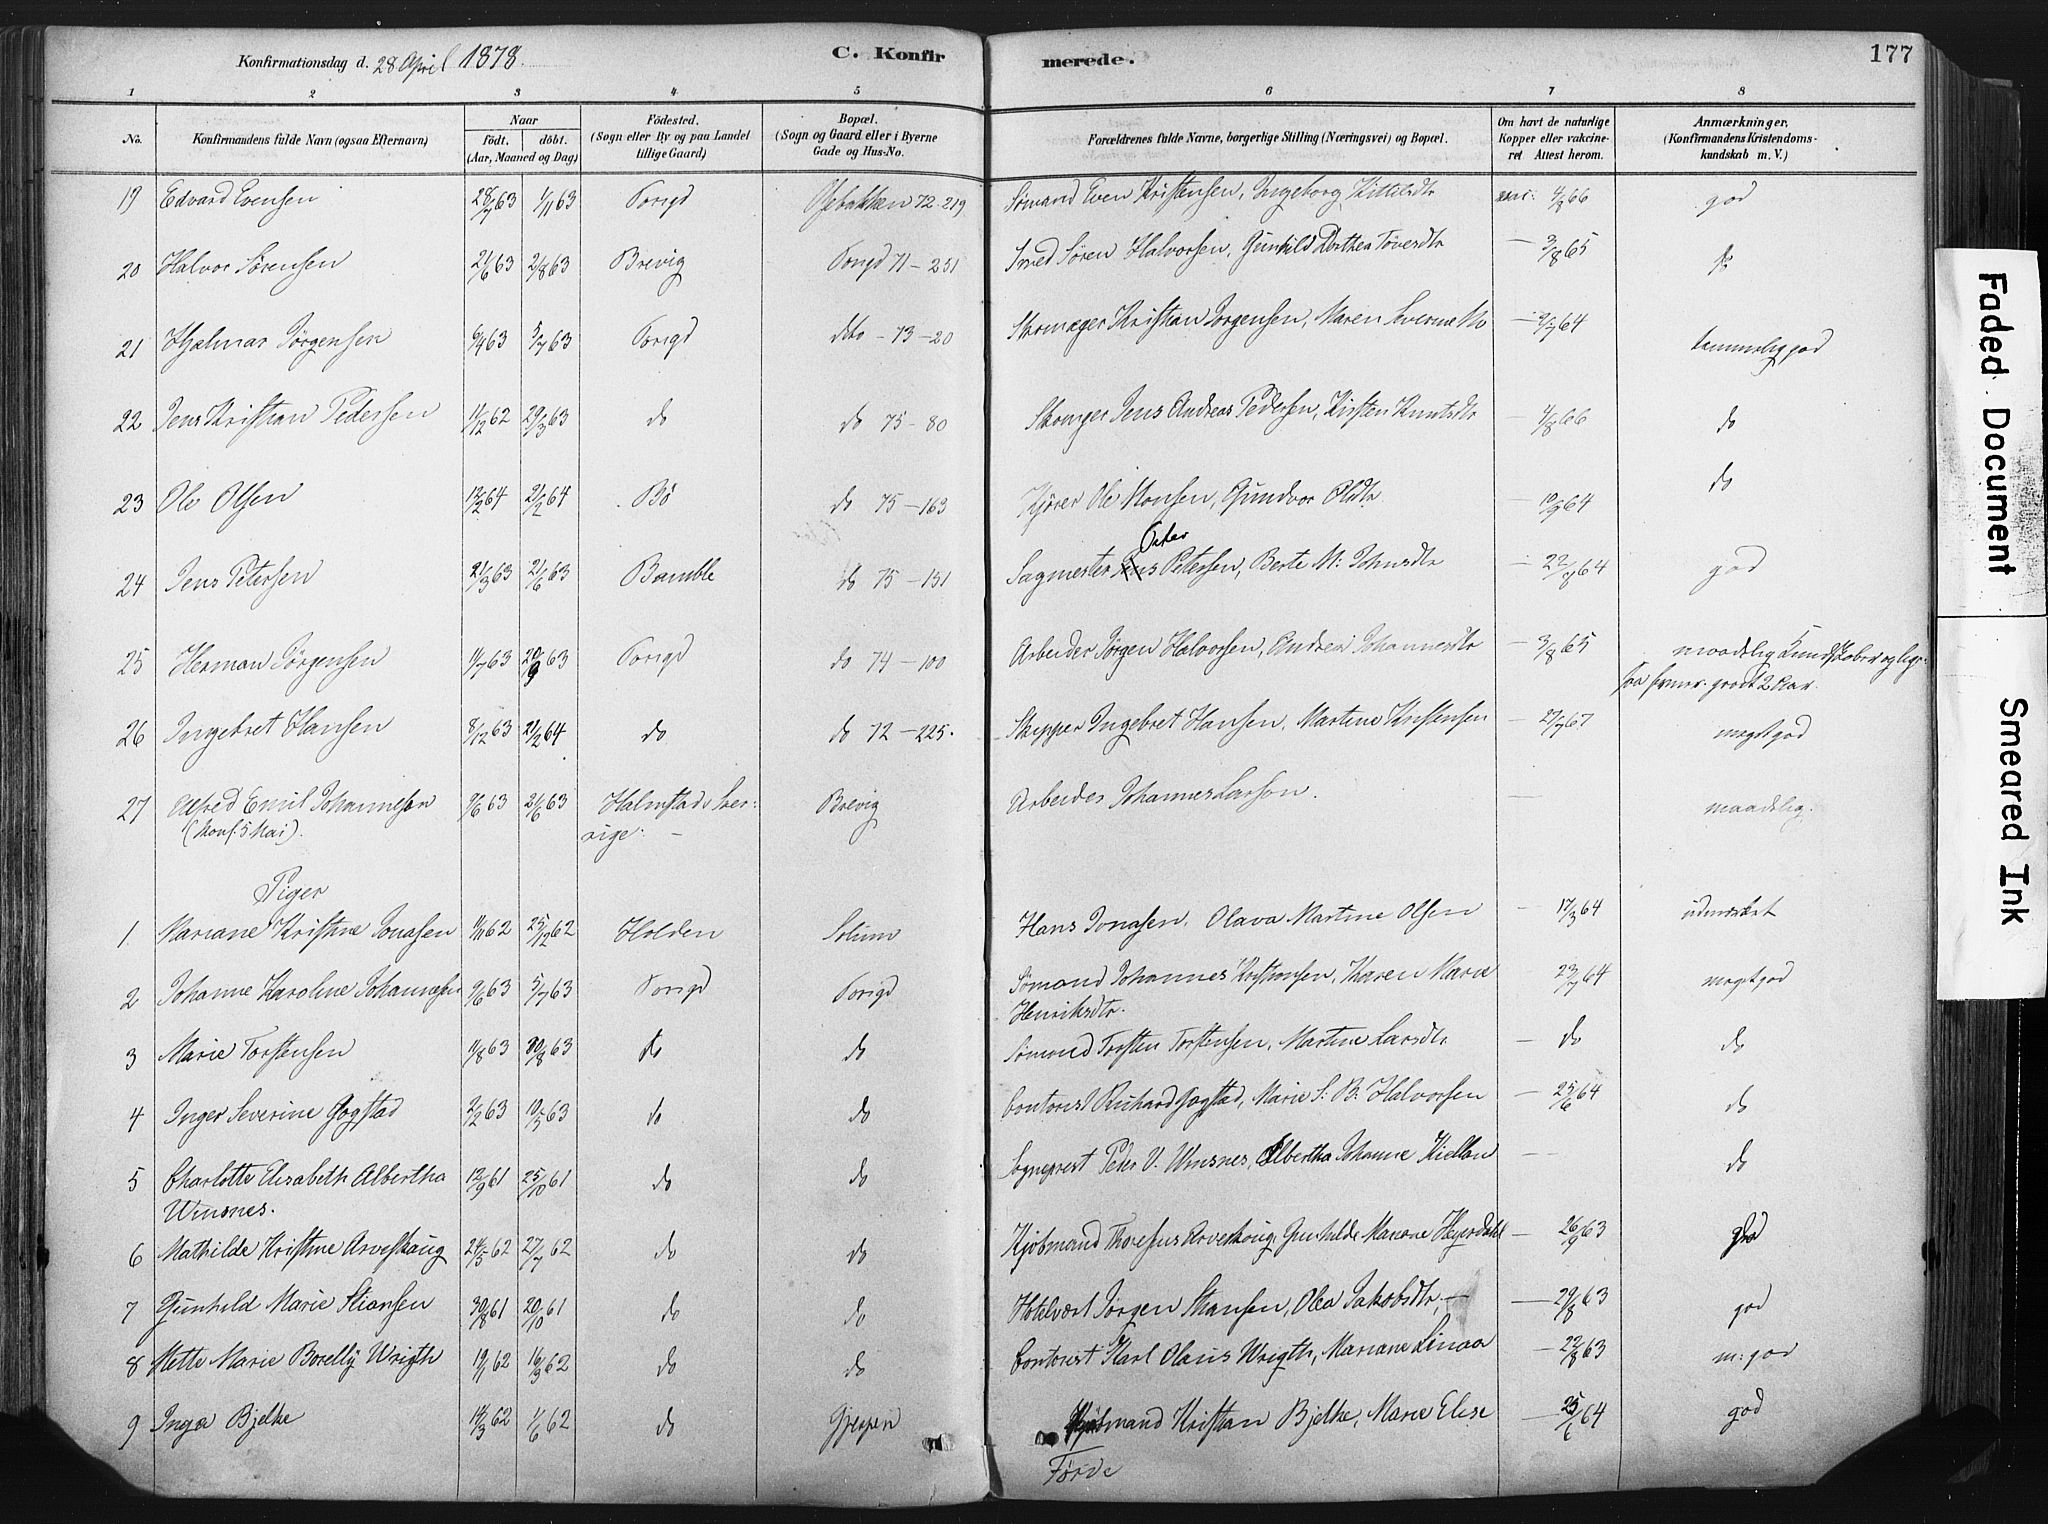 Konfirmationsdag d. 28 April 1878.
C. Konfirmerede.
177
1 2 3 4 5 6 7 8
No.
Konfirmandens fulde Navn (ogsaa Efternavn)
Naar
født. døbt.
(Aar, Maaned og Dag)
Fødested.
(Sogn eller By og paa Landet
tillige Gaard)
Bopæl.
(Sogn og Gaard eller i Byerne
Gade og Hus-No.
Forældrenes fulde Navne, borgerlige Stilling (Næringsvei) og Bopæl.
Om havt de naturlige
Kopper eller vakcine-
ret Attest herom.
Anmærkninger,
(Konfirmandens Kristendoms-
kundskab m. V.)
19 Edvard Evensen 28/7 63 1/11 63 Porsgd 72-219 Sømand Even Kristensen, Ingeborg Kittilsdtr vac: 4/8 66 god
20 Halvor Sørensen 21/6 63 2/8 63 Brevig Porsgd 71-251 Smed Søren Halvorsen, Gunhild Dorthea Toversdtr — 3/8 65
21 Hjalmar Jørgensen 6/4 63 5/7 63 Porsgd dto - 73-20 Kristian Jorgensen, Maren — 9/7 64 temmelig god
22 Jens Kristian Pedersen 11/12 62 29/3 63 do do 75-80 Jens Andreas Pedersen, Kirsten Knutsdtr — 4/8 66 do
23 Ole Olsen 12/2 64 21/2 64 Bø do 75-163 Kjører Ole Hansen, Gundvor Olsdtr — 19/9 64 do
24 Jens Petersen 21/3 63 21/6 63 Bamble do 75-151 Sagmester Peter Petersen, Berte M: Johnsdtr — 22/7 64 god
25 Herman Jørgensen 11/7 63 20/9 63 Porsgd do 74-100 Arbeider Jørgen Halvorsen, Andrea Johannesdtr — 3/8 65 maadelig
26 Ingebret Hansen 8/12 63 21/2 64 do do 72-225. Skipper Ingebret Hansen, Martine Kristensen — 27/7 67 meget god
27 Alfred Emil Johanneson 9/6 63 21/6 63 Halmstad Sver- Brevig Arbeider Johannes Larson. — maadelig.
(konf. 5 Mai). rige: —
Piger
1. Mariane Kristine Jonasen 11/11 62 25/12 62 Holden Solum Hans Jonasen. Olava Martine Olsen — 17/3 64 udmærket
2 Johanne Karoline Johannesen 9/6 63 5/7 63 Porsgd Porsgd Sømand Johannes Kristiansen, Karen Marie — 23/7 64 meget god
Henriksdtr.
3 Marie Torstensen 11/8 63 30/8 63 do do Sømand Torsten Torstensen, Martine Larsdtr — do do
4 Inger Severine Gogstad 2/2 63 10/5 63 do do Contorist Richard Gogstad, Marie S. B. Halvorsen — 25/6 64 do
5 Charlotte Elisabeth Albertha 12/9 61 25/10 61 do do Sogneprest Peder V. Winsnes, Albertha Johanne Kielland — do
Winsnes.
6 Mathilde Kristine Arveskoug 24/5 62 27/7 62 do do Kjøbmand Thoresus Arveskoug, Gunhilde Mariane Heyerdahl — 26/9 63 god
7 Gunhild Marie Stiansen 30/8 61 20/10 61 do do Jørgen Stiansen, Olea Jakobsdtr — 29/8 63 god
8 Mette Marie Borelly Wrigth 19/1 62 16/3 62 do do Contorist Karl Olaus Wrigth, Mariane Linaa — 22/8 63 m: god
9 Inga Bjelke 14/3 62 1/6 62 do Gjerpen Kjøbmand Kristian Bjelke, Marie Elise — 25/6 64 god
Førde
Faded Document
Smeared Ink